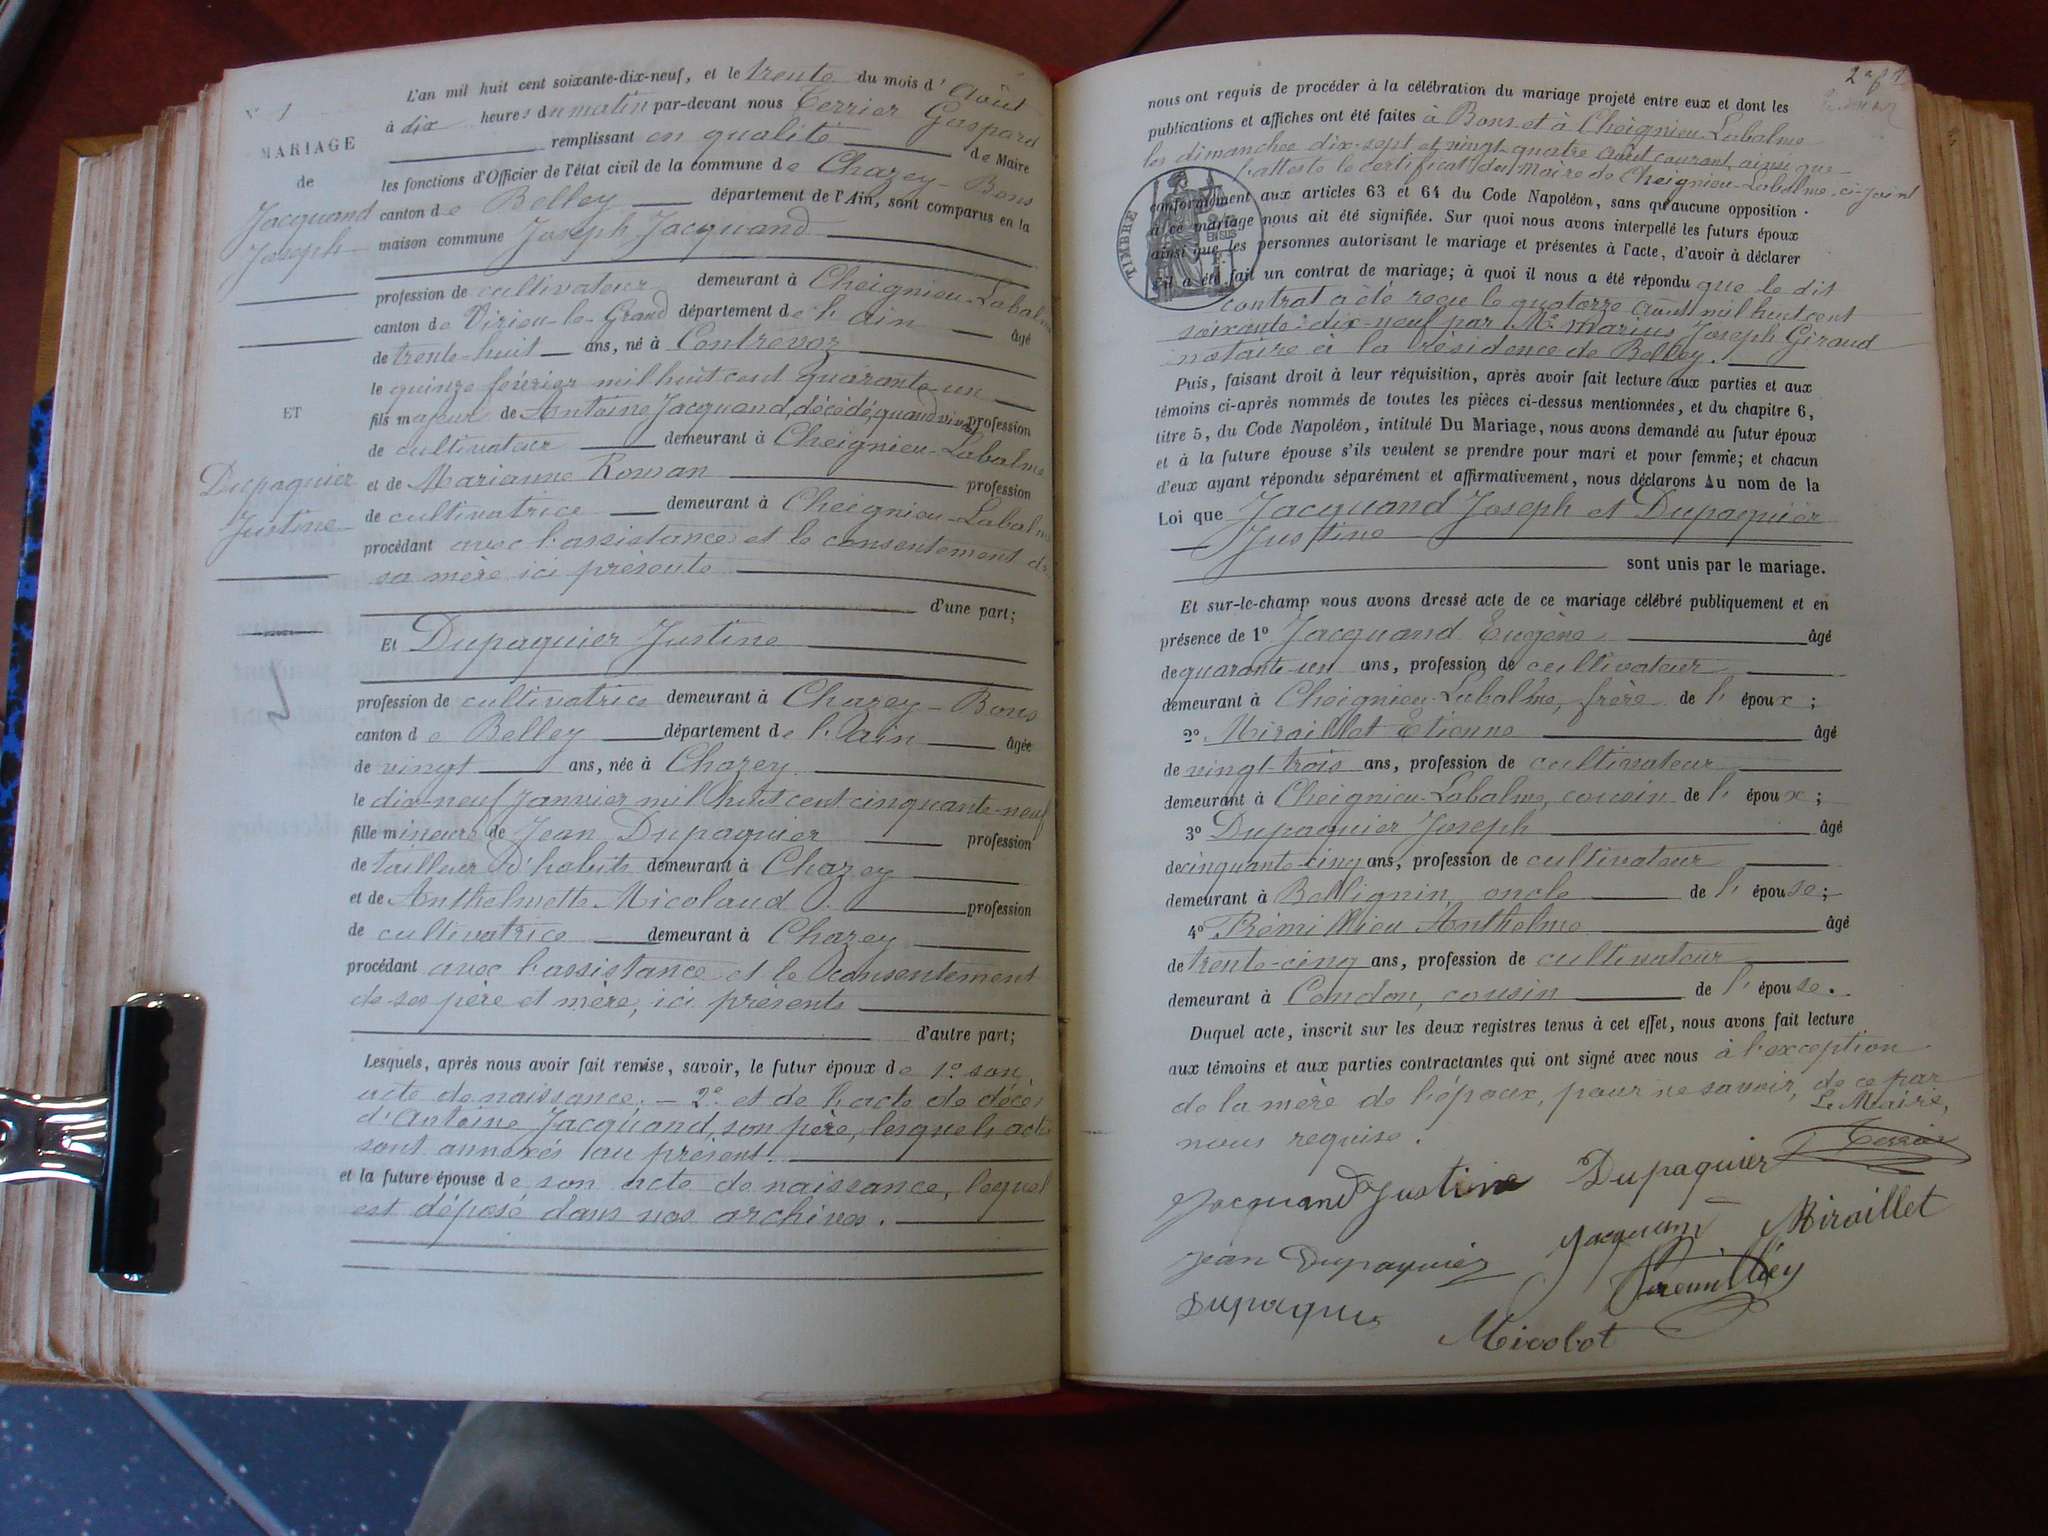 N° 1
MARIAGE
de
Jacquand
Joseph
ET
Dupaquier
Justine
L'an mil huit cent soixante-dix-neuf, et le trente du mois d'août
à dix heures du matin par-devant nous Terrier Gaspard
remplissant en qualité de Maire
les fonctions d'Officier de l'état civil de la commune de Chazey-Bons
canton de Belley département de l'Ain, sont comparus en la
maison commune Joseph Jacquand
profession de cultivateur demeurant à Cheignieu-Labalme
canton de Virieu-le-Grand département de l'ain âgé
de trente-huit ans, né à Contrevoz
le quinze février mil huit cent quarante-un
fils majeur de Antoine Jacquand, décédé, quand vivait profession
de cultivateur demeurant à Cheignieu-Labalme
et de Marianne Roman profession
de cultivatrice demeurant à Cheignieu-Labalme
procédant avec l'assistance et le consentement de
sa mère ici présente
d'une part;
Et Dupaquier Justine
profession de cultivatrice demeurant à Chazey-Bons
canton de Belley département de l'Ain âgée
de vingt ans, née à Chazey
le dix-neuf Janvier mil huit cent cinquante-neuf
fille mineure de Jean Dupaquier profession
de tailleur d'habits demeurant à Chazey
et de Anthelmette Micolaud profession
de cultivatrice demeurant à Chazey
procédant avec l'assistance et le consentement
de ses père et mère, ici présents
d'autre part;
Lesquels, après nous avoir fait remise, savoir, le futur époux de 1° son
acte de naissance; - 2° et de l'acte de décès
d'Antoine Jacquand, son père, lesquels actes
sont annexés au présent.
et la future épouse de son acte de naissance, lequel
est déposé dans nos archives.
nous ont requis de procéder à la célébration du mariage projeté entre eux et dont les
publications et affiches ont été faites à Bons et à Cheignieu-Labalme
les dimanches dix-sept et vingt-quatre août courant, ainsi que
l'atteste le certificat du Maire de Cheignieu-Labalme, ci-joint
conformément aux articles 63 et 64 du Code Napoléon, sans qu'aucune opposition
à ce mariage nous ait été signifiée. Sur quoi nous avons interpellé les futurs époux
ainsi que les personnes autorisant le mariage et présentes à l'acte, d'avoir à déclarer
s'il a été fait un contrat de mariage; à quoi il nous a été répondu que le dit
contrat a été reçu le quatorze août mil huit cent
soixante-dix-neuf par Me Marius Joseph Giraud
notaire à la résidence de Belley.
TIMBRE
Puis, faisant droit à leur réquisition, après avoir fait lecture aux parties et aux
témoins ci-après nommés de toutes les pièces ci-dessus mentionnées, et du chapitre 6,
titre 5, du Code Napoléon, intitulé Du Mariage, nous avons demandé au futur époux
et à la future épouse s'ils veulent se prendre pour mari et pour femme; et chacun
d'eux ayant répondu séparément et affirmativement, nous déclarons Au nom de la
Loi que Jacquand Joseph et Dupaquier
Justine
sont unis par le mariage.
Et sur-le-champ nous avons dressé acte de ce mariage célébré publiquement et en
présence de 1° Jacquand Eugène âgé
de quarante-un ans, profession de cultivateur
demeurant à Cheignieu-Labalme, frère de l'époux;
2° Miraillet Etienne âgé
de vingt-trois ans, profession de cultivateur
demeurant à Cheignieu-Labalme, cousin de l'époux;
3° Dupaquier Joseph âgé
de cinquante-cinq ans, profession de cultivateur
demeurant à Bellignin, oncle de l'épouse;
4° Prémillieu Anthelme âgé
de trente-cinq ans, profession de cultivateur
demeurant à Condon, cousin de l'épouse.
Duquel acte, inscrit sur les deux registres tenus à cet effet, nous avons fait lecture
aux témoins et aux parties contractantes qui ont signé avec nous à l'exception
de la mère de l'époux, pour ne savoir, de ce par
nous requise.
Le Maire,
Terrier
Jacquand Justine Dupaquier
Jean Dupaquier Jacquand Miraillet
Dupaquier